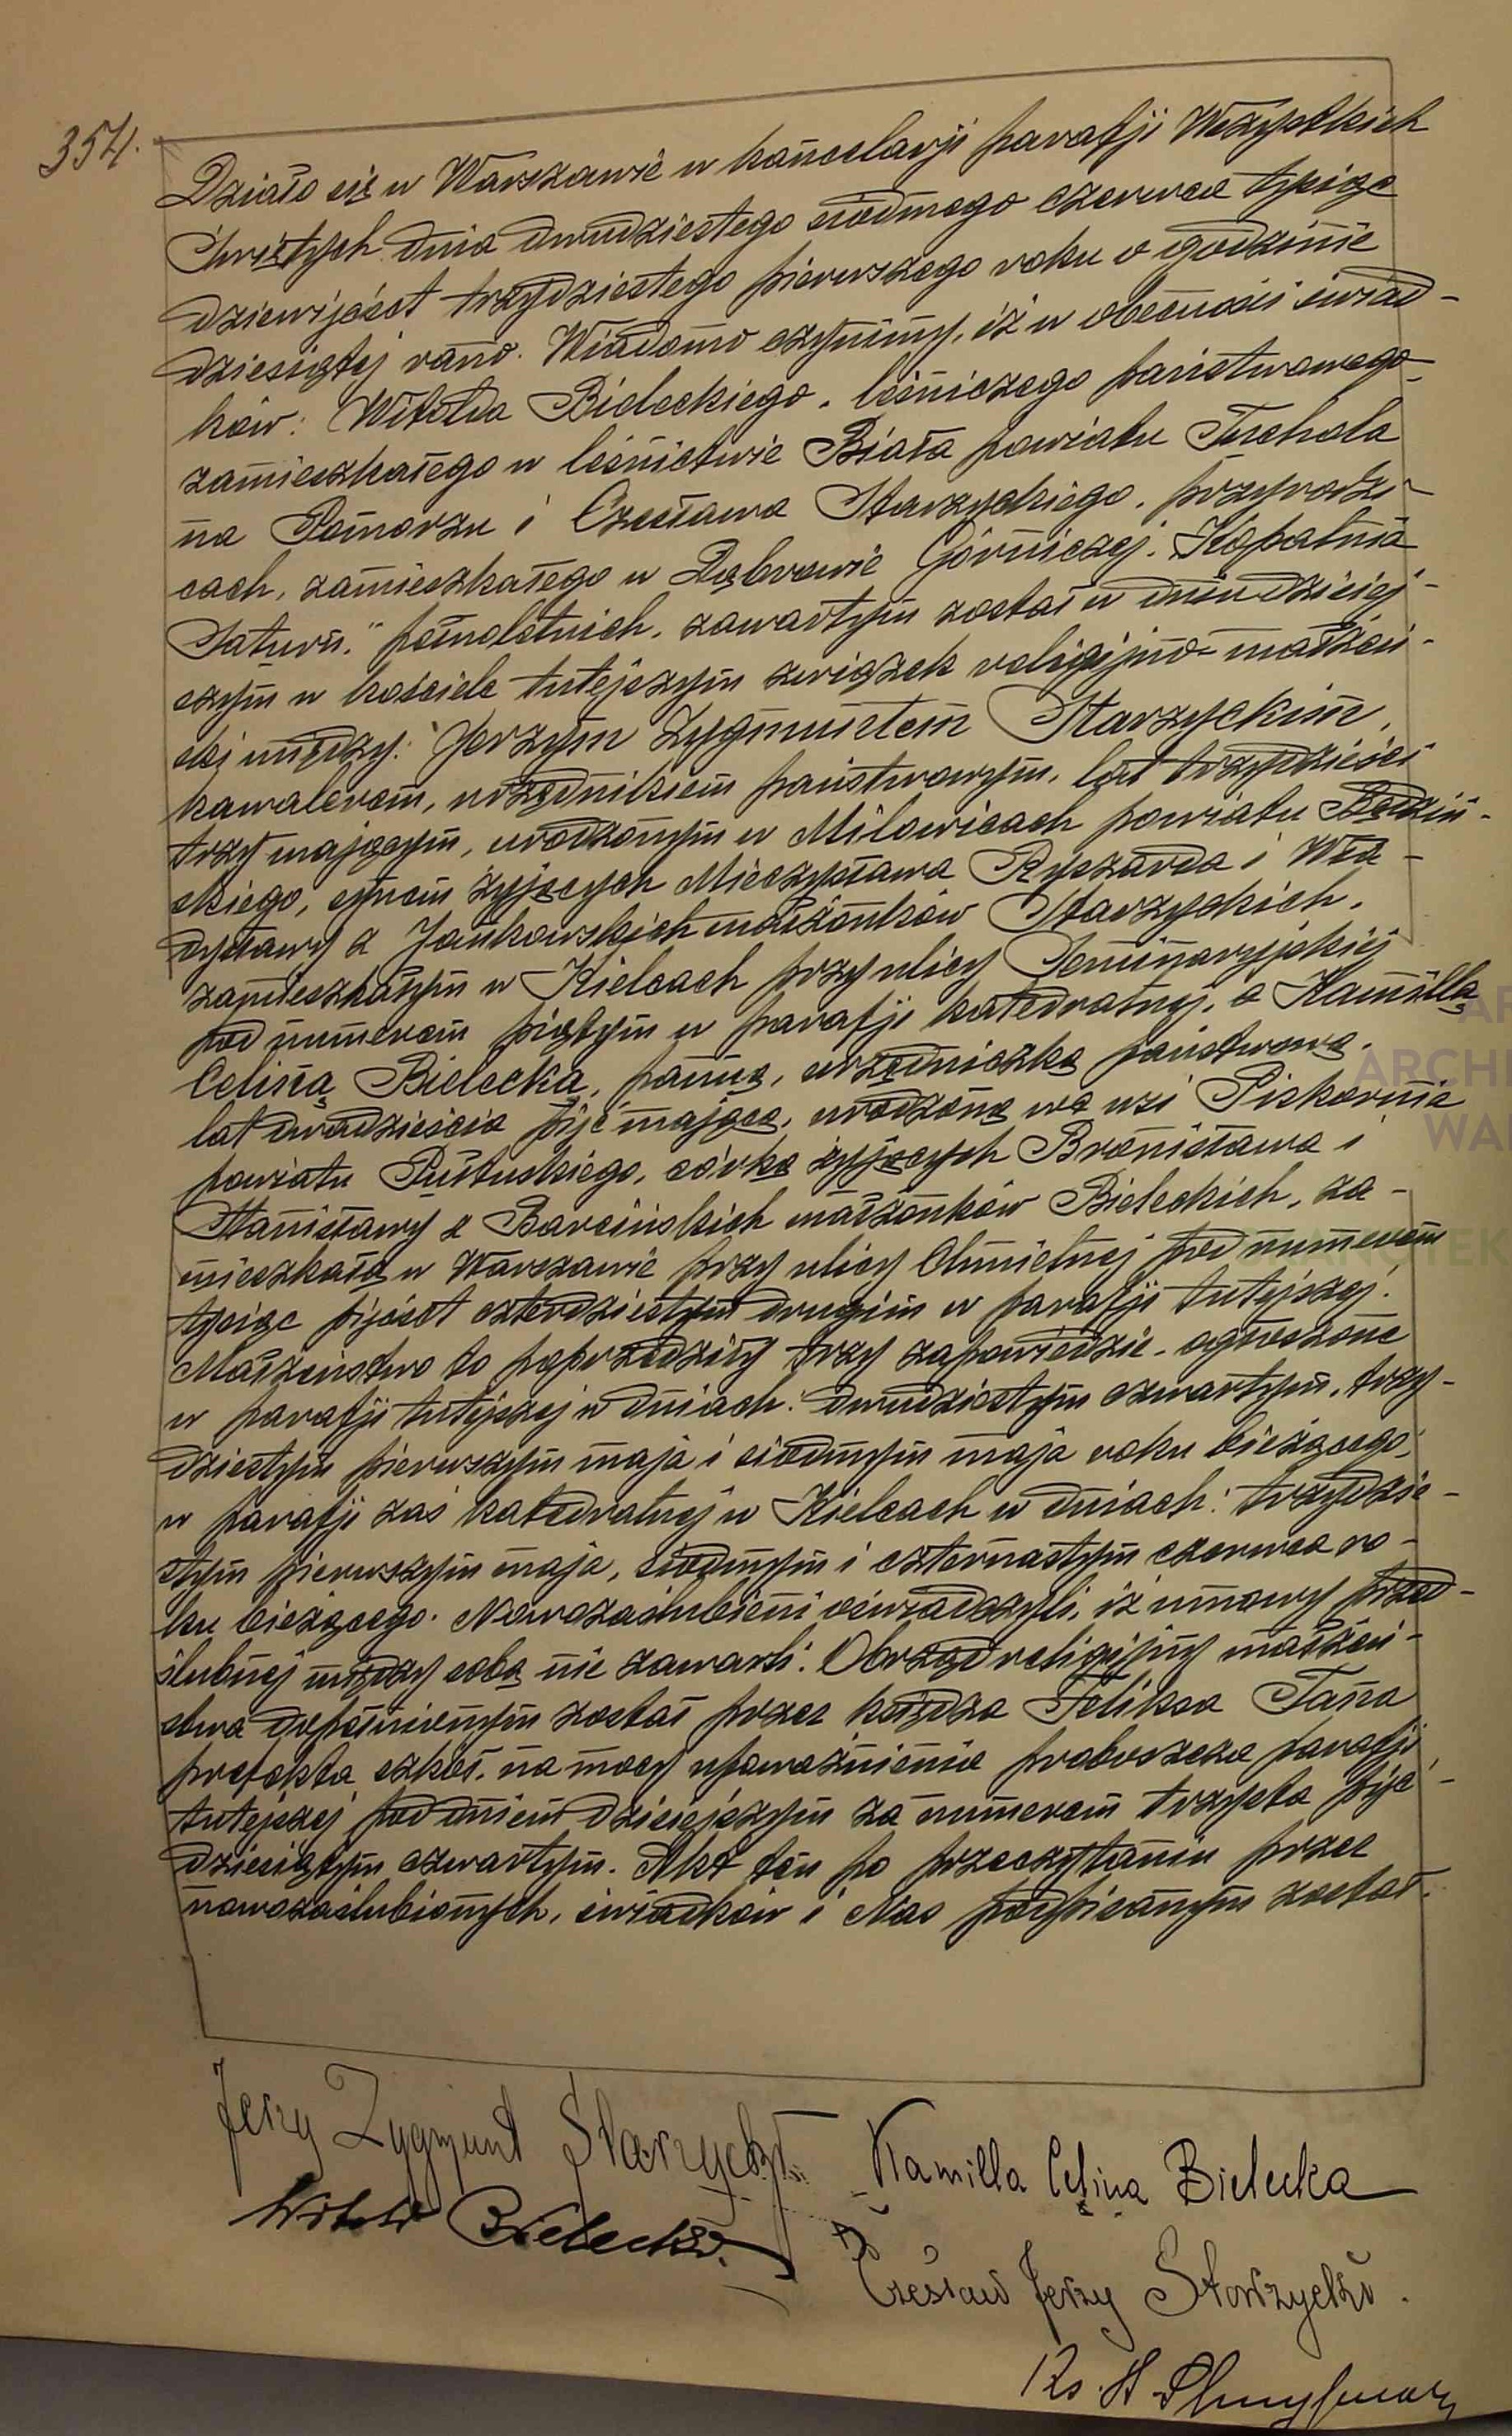 354.
Działo się w Warszawie w kancelarji parafji Wszystkich
Świętych dnia dwudziestego siódmego czerwca tysiąc
dziewięćset trzydziestego pierwszego roku o godzinie
dziesiątej rano. Wiadomo czynimy, iż w obecności świad-
ków: Witolda Bieleckiego, leśniczego państwowego
zamieszkałego w leśnictwie Biała powiatu Tuchola
na Pomorzu i Czesława Starzyckiego, przy
cach, zamieszkałego w Dąbrowie Górniczej „Kopalnia
Saturn," pełnoletnich, zawartym został w dniu dzisiej-
szym w kościele tutejszym związek religijno-małżeń-
ski między: Jerzym Zygmuntem Starzyckim,
kawalerem, urzędnikiem państwowym, lat trzydzieści
trzy mającym, urodzonym w Milowicach powiatu Będziń-
skiego, synem żyjących Mieczysława Ryszarda i Wła-
dysławy z Jankowskich małżonków Starzyckich,
zamieszkałym w Kielcach przy ulicy Seminaryjskiej
pod numerem piątym w parafji katedralnej, a Kamillą
Celiną Bielecką, panną, urzędniczką państwową,
lat dwadzieścia pięć mającą, urodzoną we wsi Piskornia
powiatu Pułtuskiego, córką żyjących Bronisława i
Stanisławy z Barcińskich małżonków Bieleckich, za-
mieszkałą w Warszawie przy ulicy Chmielnej pod numerem
tysiąc pięćset czterdziestym drugim w parafji tutejszej.
Małżeństwo to poprzedziły trzy zapowiedzie, ogłoszone
w parafji tutejszej w dniach: dwudziestym czwartym, trzy-
dziestym pierwszym maja i siódmym maja roku bieżącego,
w parafji zaś katedralnej w Kielcach w dniach: trzydzie-
stym pierwszym maja, siódmym i czternastym czerwca ro-
ku bieżącego. Nowozaślubieni oświadczyli, iż umowy przed-
ślubnej między sobą nie zawarli. Obrzęd religijny małżeń-
stwa dopełnionym został przez księdza Feliksa
prefekta szkół, na mocy upoważnienia proboszcza parafji
tutejszej pod dniem dzisiejszym za numerem trzysta pięć-
dziesiątym czwartym. Akt ten po przeczytaniu przez
nowozaślubionych, świadków i Nas podpisanym został.
Jerzy Zygmunt Starzycki Kamilla Celina Bielecka
Witold Bielecki
Czesław Jerzy Starzycki.
Ks.